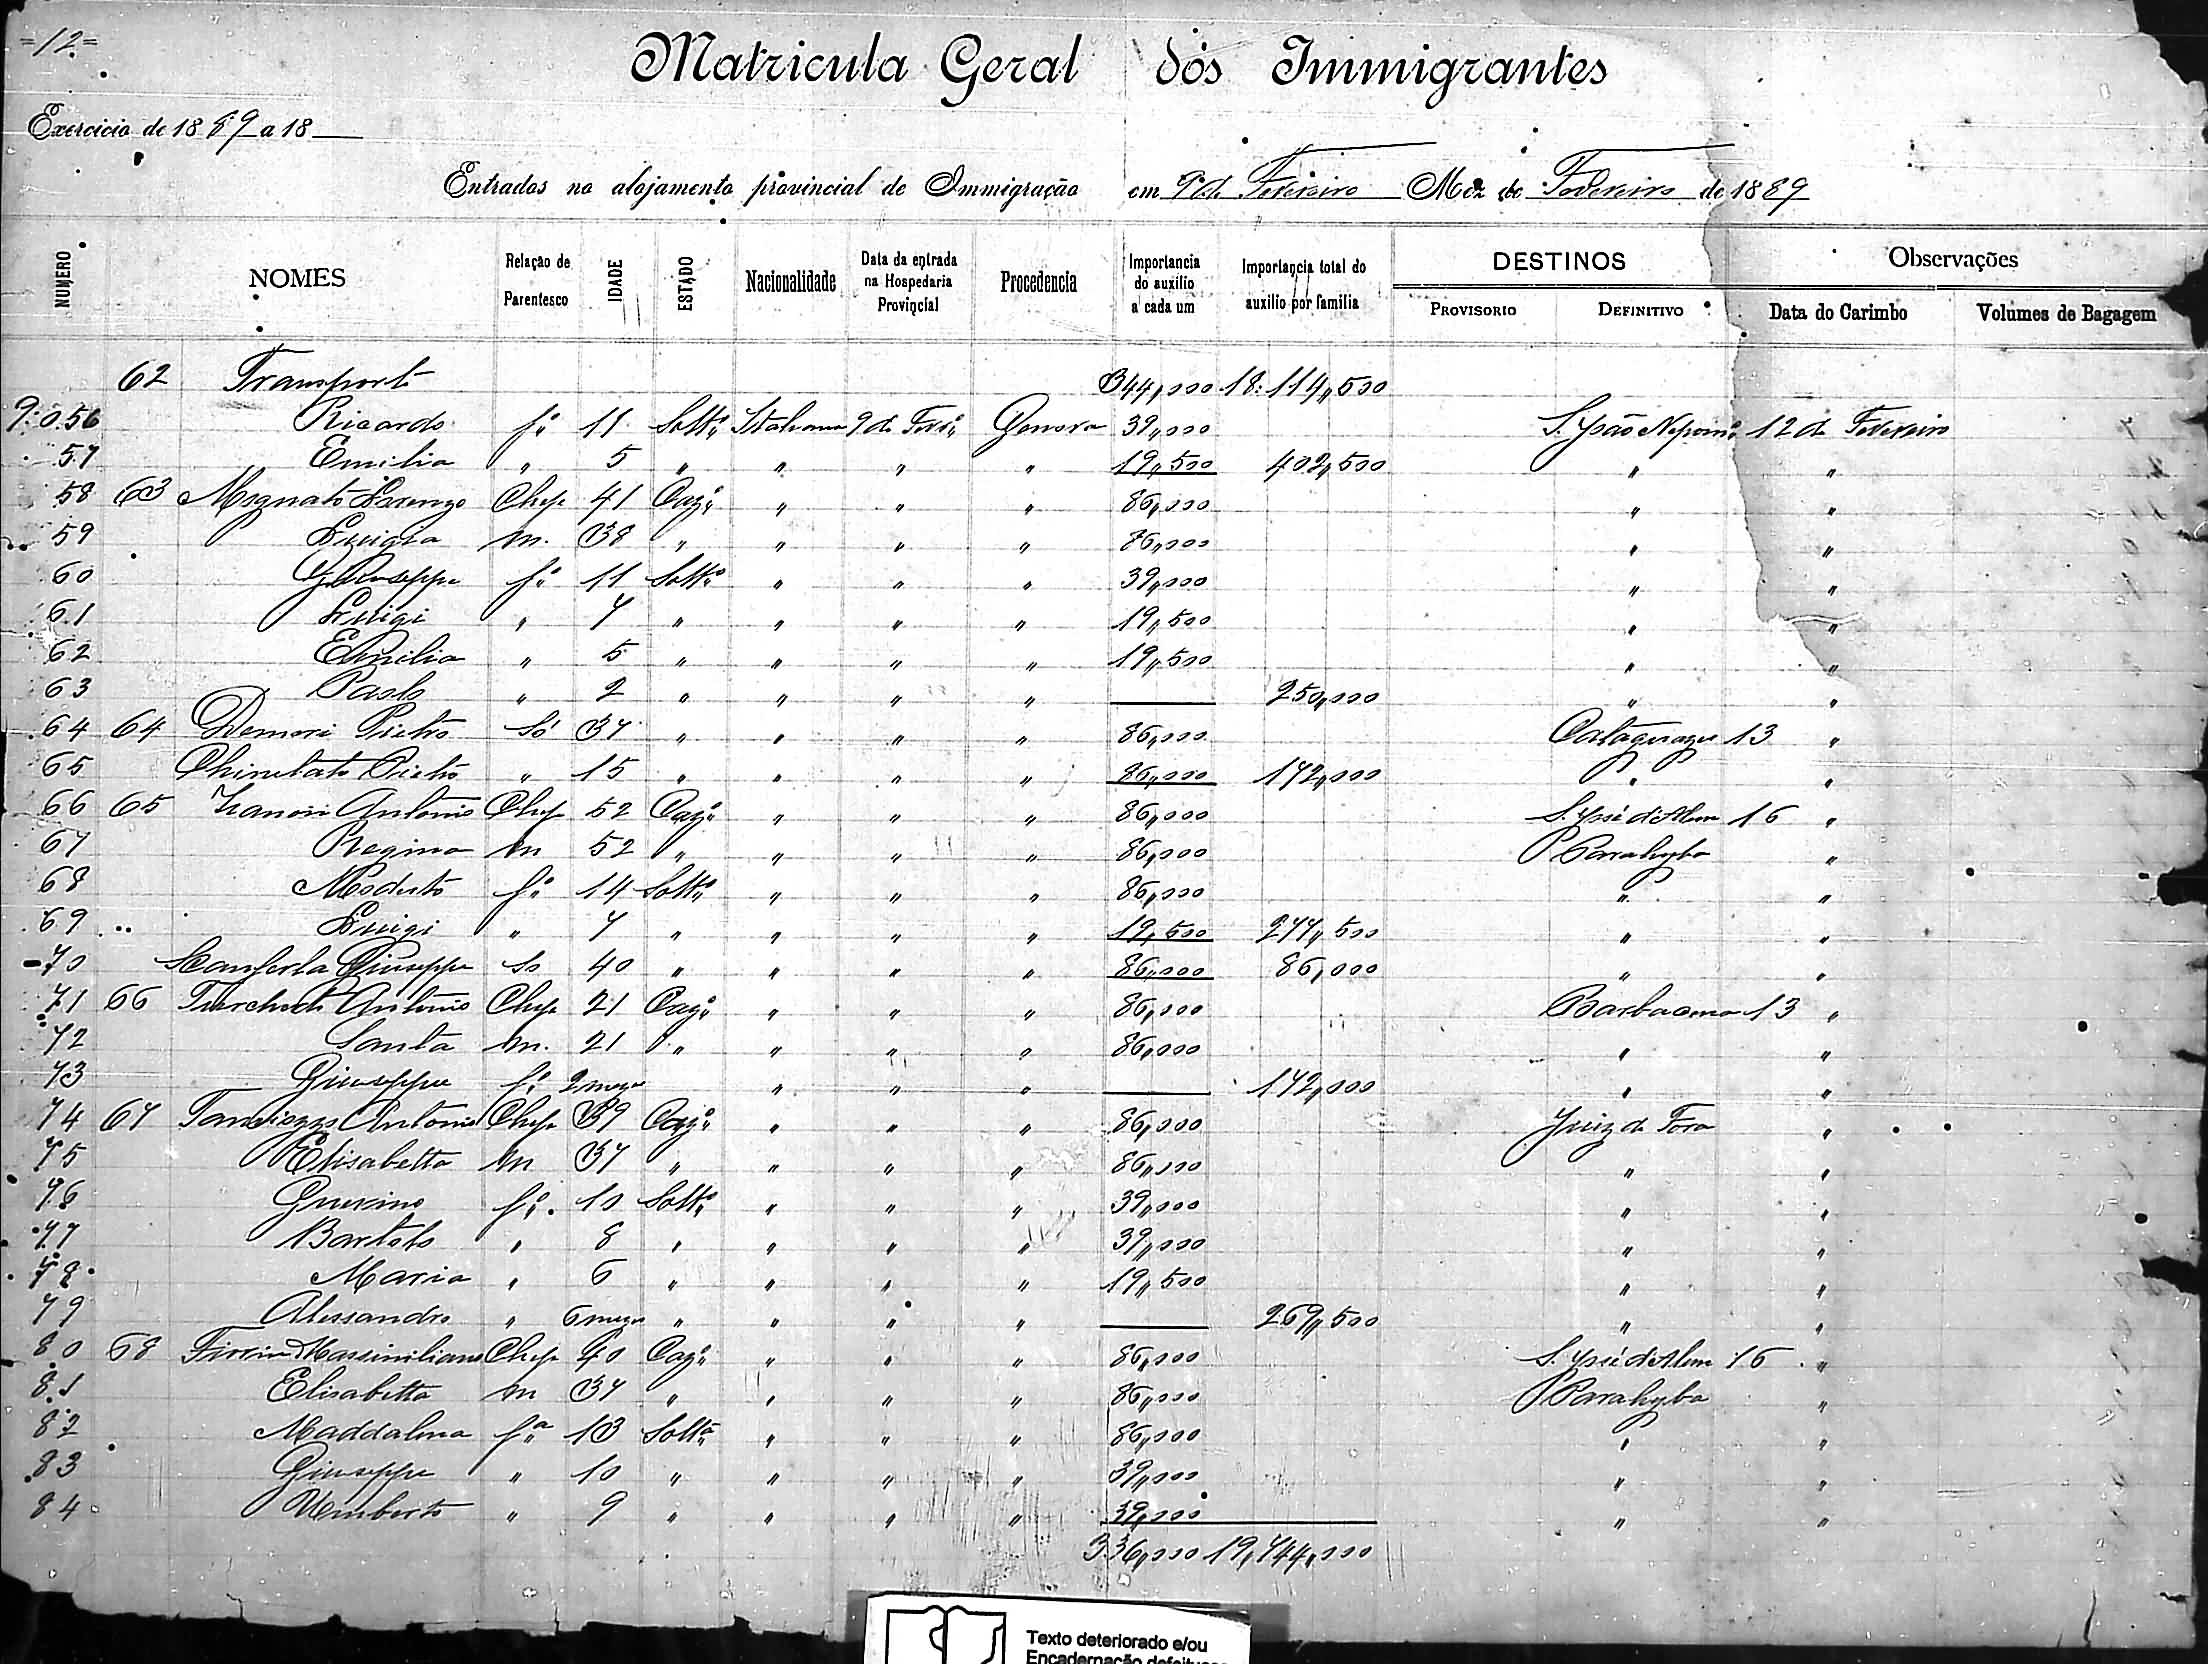 =12=
Matricula Geral dos Immigrantes
Exercicio de 1889 a 18
Entrados no alojamento provincial de Immigração em 9 de Fevereiro Mez de Fevereiro de 1889
NUMERO NOMES Relação de Parentesco IDADE ESTADO Nacionalidade Data da entrada na Hospedaria Provincial Procedencia Importancia do auxilio a cada um Importancia total do auxilio por familia DESTINOS PROVISORIO DEFINITIVO Observações Data do Carimbo Volumes de Bagagem
62 Transporte 344,000 18:114,500
9:056 Ricardo fº 11 Soltº Italiana 9 de Fevº Genova 39,000 S. João Nepomº 12 de Fevereiro
57 Emilia " 5 " " " " 19,500 402,500 " "
58 63 Lorenzo Chefe 41 Cazº " " " 86,000 " "
59 Luigia m. 38 " " " " 86,000 " "
60 Giuseppe fº 11 Soltº " " " 39,000 " "
61 Luigi " 7 " " " " 19,500 " "
62 Emilia " 5 " " " " 19,500 " "
63 Paolo " 2 " " " " — 250,000 " "
64 64 Demori Pietro Só 37 " " " " 86,000 Cataguazes 13 "
65 Pietro " 15 " " " " 86,000 172,000 " "
66 65 Zanon Antonio Chefe 52 Cazº " " " 86,000 S. José d'Alem 16 "
67 Regina m 52 " " " " 86,000 Parahyba "
68 Modesto fº 14 Soltº " " " 86,000 " "
69 Luigi " 7 " " " " 19,500 277,500 " "
70 Scanferla Giuseppe So 40 " " " " 86,000 86,000 " "
71 66 Turchetti Antonio Chefe 21 Cazº " " " 86,000 Barbacena 13 "
72 Santa m. 21 " " " " 86,000 " "
73 Giuseppe fº 2 mezes " " " — 172,000 " "
74 67 Antonio Chefe 39 Cazº " " " 86,000 Juiz de Fora "
75 Elisabetta m 37 " " " " 86,000 " "
76 Guerino fº 10 Soltº " " " 39,000 " "
77 Bortolo " 8 " " " " 39,000 " "
78 Maria " 6 " " " " 19,500 " "
79 Alessandro " 6 mezes " " " " — 269,500 " "
80 68 Massimiliano Chefe 40 Cazº " " " 86,000 S. José d'Alem 16 "
81 Elisabetta m 37 " " " " 86,000 Parahyba "
82 Maddalena fª 13 Soltª " " " 86,000 " "
83 Giuseppe " 10 " " " " 39,000 " "
84 Umberto " 9 " " " " 39,000 " "
336,000 19,744,000
Texto deteriorado e/ou